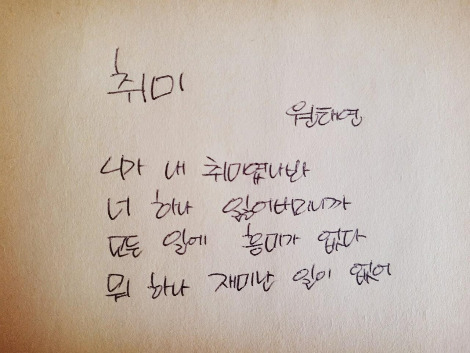 취미
원태연
니가 내 취미였나봐
너 하나 잃어버리니까
모든 일에 흥미가 없다
뭐 하나 재미난 일이 없어